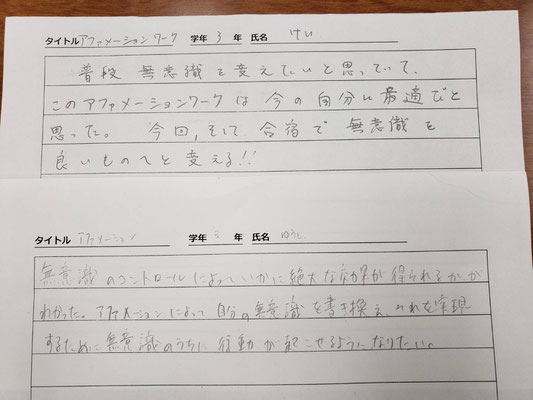 タイトル アファメーションワーク 学年 3 年 氏名 けい
普段 無意識を変えたいと思っていて、
このアファメーションワークは 今の自分に最適だと
思った。 今回、そして 合宿で 無意識を
良いものへと変える!!
タイトル アファメーション 学年 3 年 氏名
無意識のコントロールによっていかに絶大な効果が得られるかが
わかった。アファメーションによって自分の無意識を書き換え、それを実現
するために無意識のうちに行動が起こせるようになりたい。